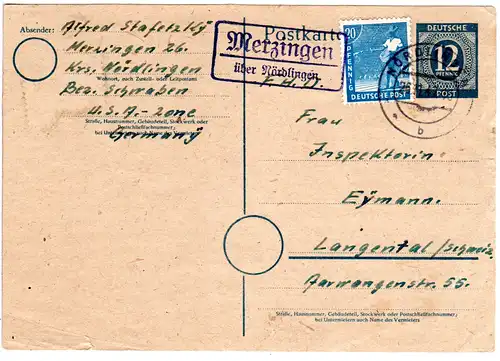 Absender: Alfred Stafetzky
Merzingen 26.
Krs. Nördlingen
Wohnort, auch Zustell- oder Leitpostamt
Bez. Schwaben
U.S.A.-zone
Straße, Hausnummer, Gebäudeteil, Stockwerk oder Postschließfachnummer;
bei Untermietern auch Name des Vermieters
Germany
Postkarte
Merzingen
über Nördlingen
20
PFENNIG
DEUTSCHE POST
DEUTSCHE
12
PFENNIG
POST
b
Frau
Inspektorin
Eymann.
Langental/Schweiz
Aarwangenstr. 55.
Straße, Hausnummer, Gebäudeteil, Stockwerk oder Postschließfachnummer;
bei Untermietern auch Name des Vermieters